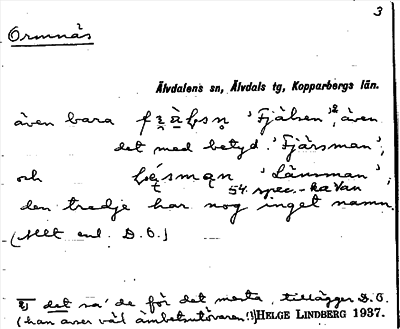 3
Ormnäs
Älvdalens sn, Älvdals tg, Kopparbergs län.
även bara 'Fjälsen', även
det med betyd. 'Fjärsman',
och 'Länman',
54. spec.-kavan
den tredje har nog inget namn.
(Allt enl. D.O.)
2) det sa' de för det mesta, tillägger D.O.
(han avser väl ämbetsutövaren!) HELGE LINDBERG 1937.